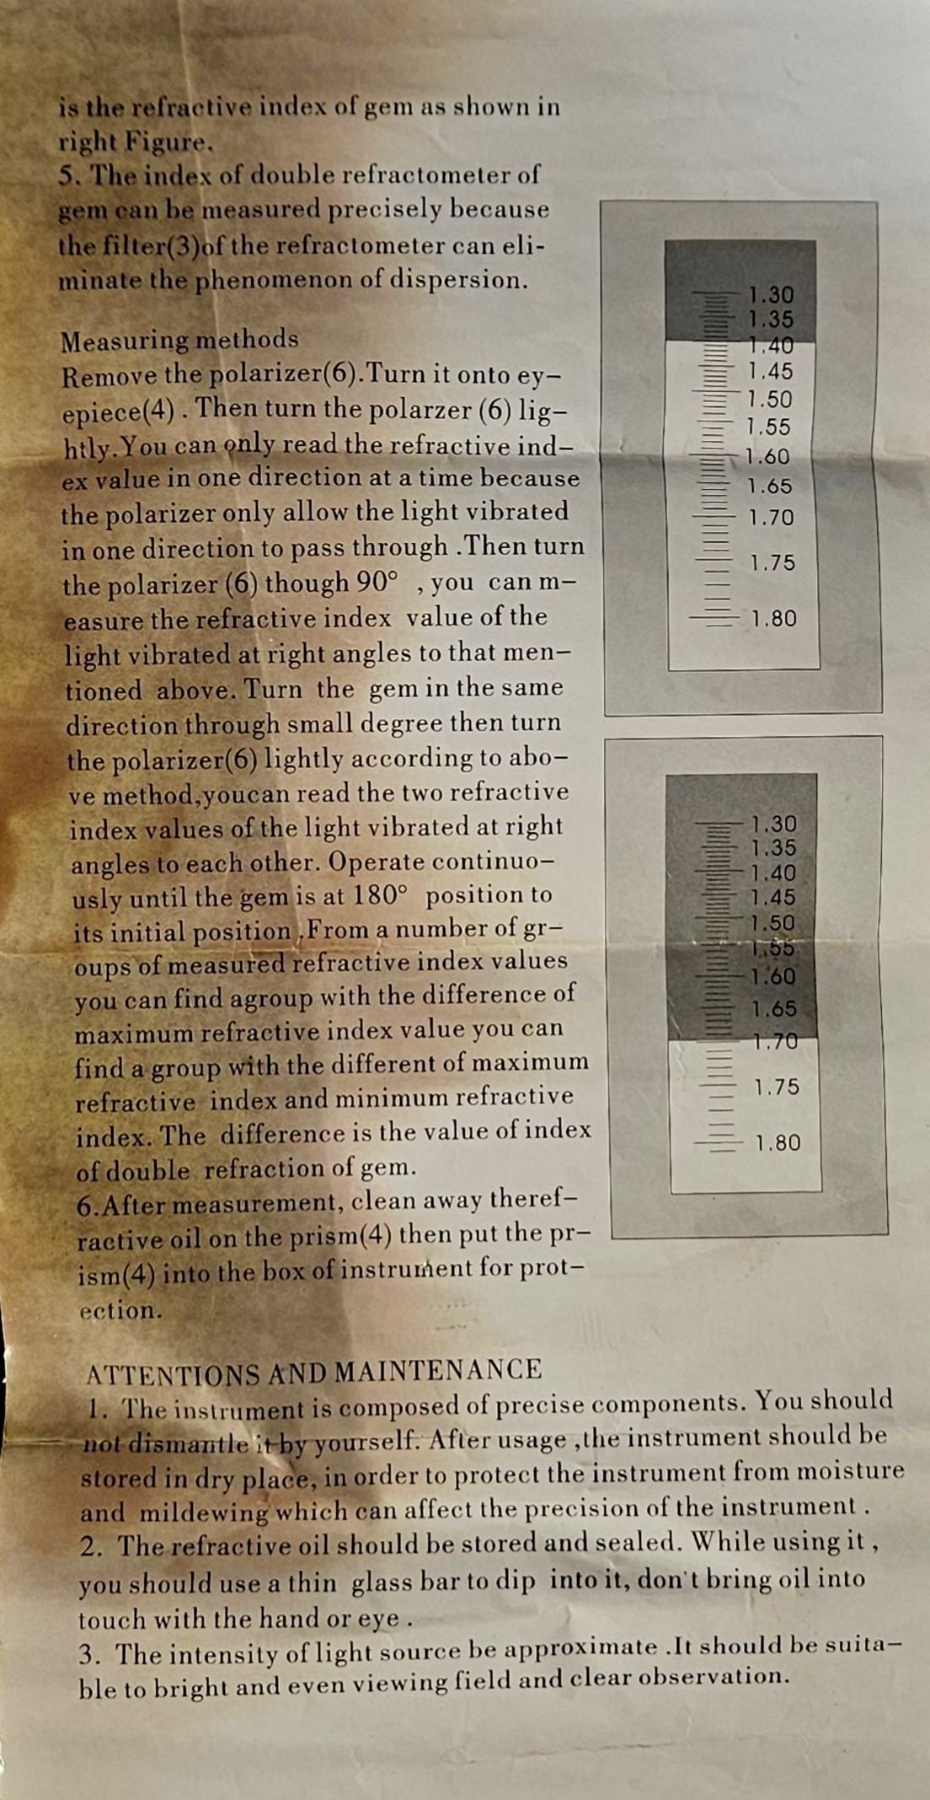 is the refractive index of gem as shown in
right Figure.
5. The index of double refractometer of
gem can be measured precisely because
the filter(3)of the refractometer can eli-
minate the phenomenon of dispersion.
Measuring methods
Remove the polarizer(6).Turn it onto ey-
epiece(4) . Then turn the polarzer (6) lig-
htly.You can only read the refractive ind-
ex value in one direction at a time because
the polarizer only allow the light vibrated
in one direction to pass through .Then turn
the polarizer (6) though 90° , you can m-
easure the refractive index value of the
light vibrated at right angles to that men-
tioned above. Turn the gem in the same
direction through small degree then turn
the polarizer(6) lightly according to abo-
ve method,youcan read the two refractive
index values of the light vibrated at right
angles to each other. Operate continuo-
usly until the gem is at 180° position to
its initial position .From a number of gr-
oups of measured refractive index values
you can find agroup with the difference of
maximum refractive index value you can
find a group with the different of maximum
refractive index and minimum refractive
index. The difference is the value of index
of double refraction of gem.
6.After measurement, clean away theref-
ractive oil on the prism(4) then put the pr-
ism(4) into the box of instrument for prot-
ection.
1.30
1.35
1.40
1.45
1.50
1.55
1.60
1.65
1.70
1.75
1.80
1.30
1.35
1.40
1.45
1.50
1.55
1.60
1.65
1.70
1.75
1.80
ATTENTIONS AND MAINTENANCE
1. The instrument is composed of precise components. You should
not dismantle it by yourself. After usage ,the instrument should be
stored in dry place, in order to protect the instrument from moisture
and mildewing which can affect the precision of the instrument .
2. The refractive oil should be stored and sealed. While using it ,
you should use a thin glass bar to dip into it, don't bring oil into
touch with the hand or eye .
3. The intensity of light source be approximate .It should be suita-
ble to bright and even viewing field and clear observation.